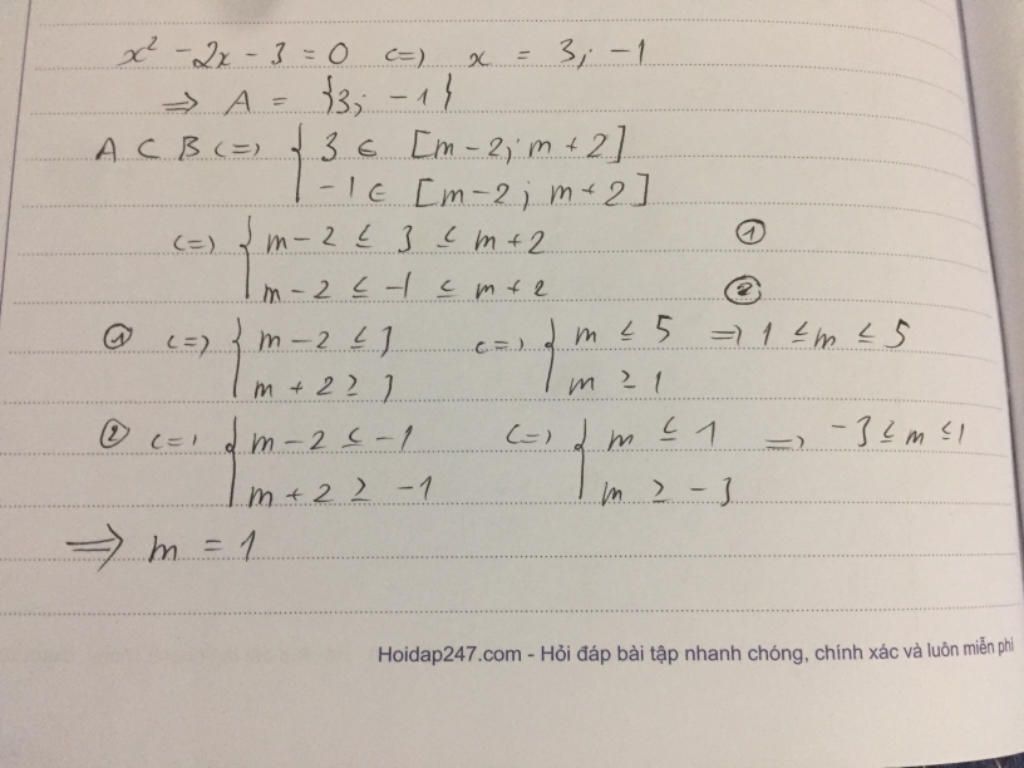 x² - 2x - 3 = 0 (=) x = 3; -1
=> A = {3; -1}
A ⊂ B (=) { 3 ∈ [m-2; m+2]
-1 ∈ [m-2; m+2]
(=) { m-2 ≤ 3 ≤ m+2 ①
m-2 ≤ -1 ≤ m+2 ②
① (=) { m-2 ≤ 3 (=) { m ≤ 5 => 1 ≤ m ≤ 5
m+2 ≥ 3 m ≥ 1
② (=) { m-2 ≤ -1 (=) { m ≤ 1 => -3 ≤ m ≤ 1
m+2 ≥ -1 m ≥ -3
=> m = 1
Hoidap247.com - Hỏi đáp bài tập nhanh chóng, chính xác và luôn miễn phí